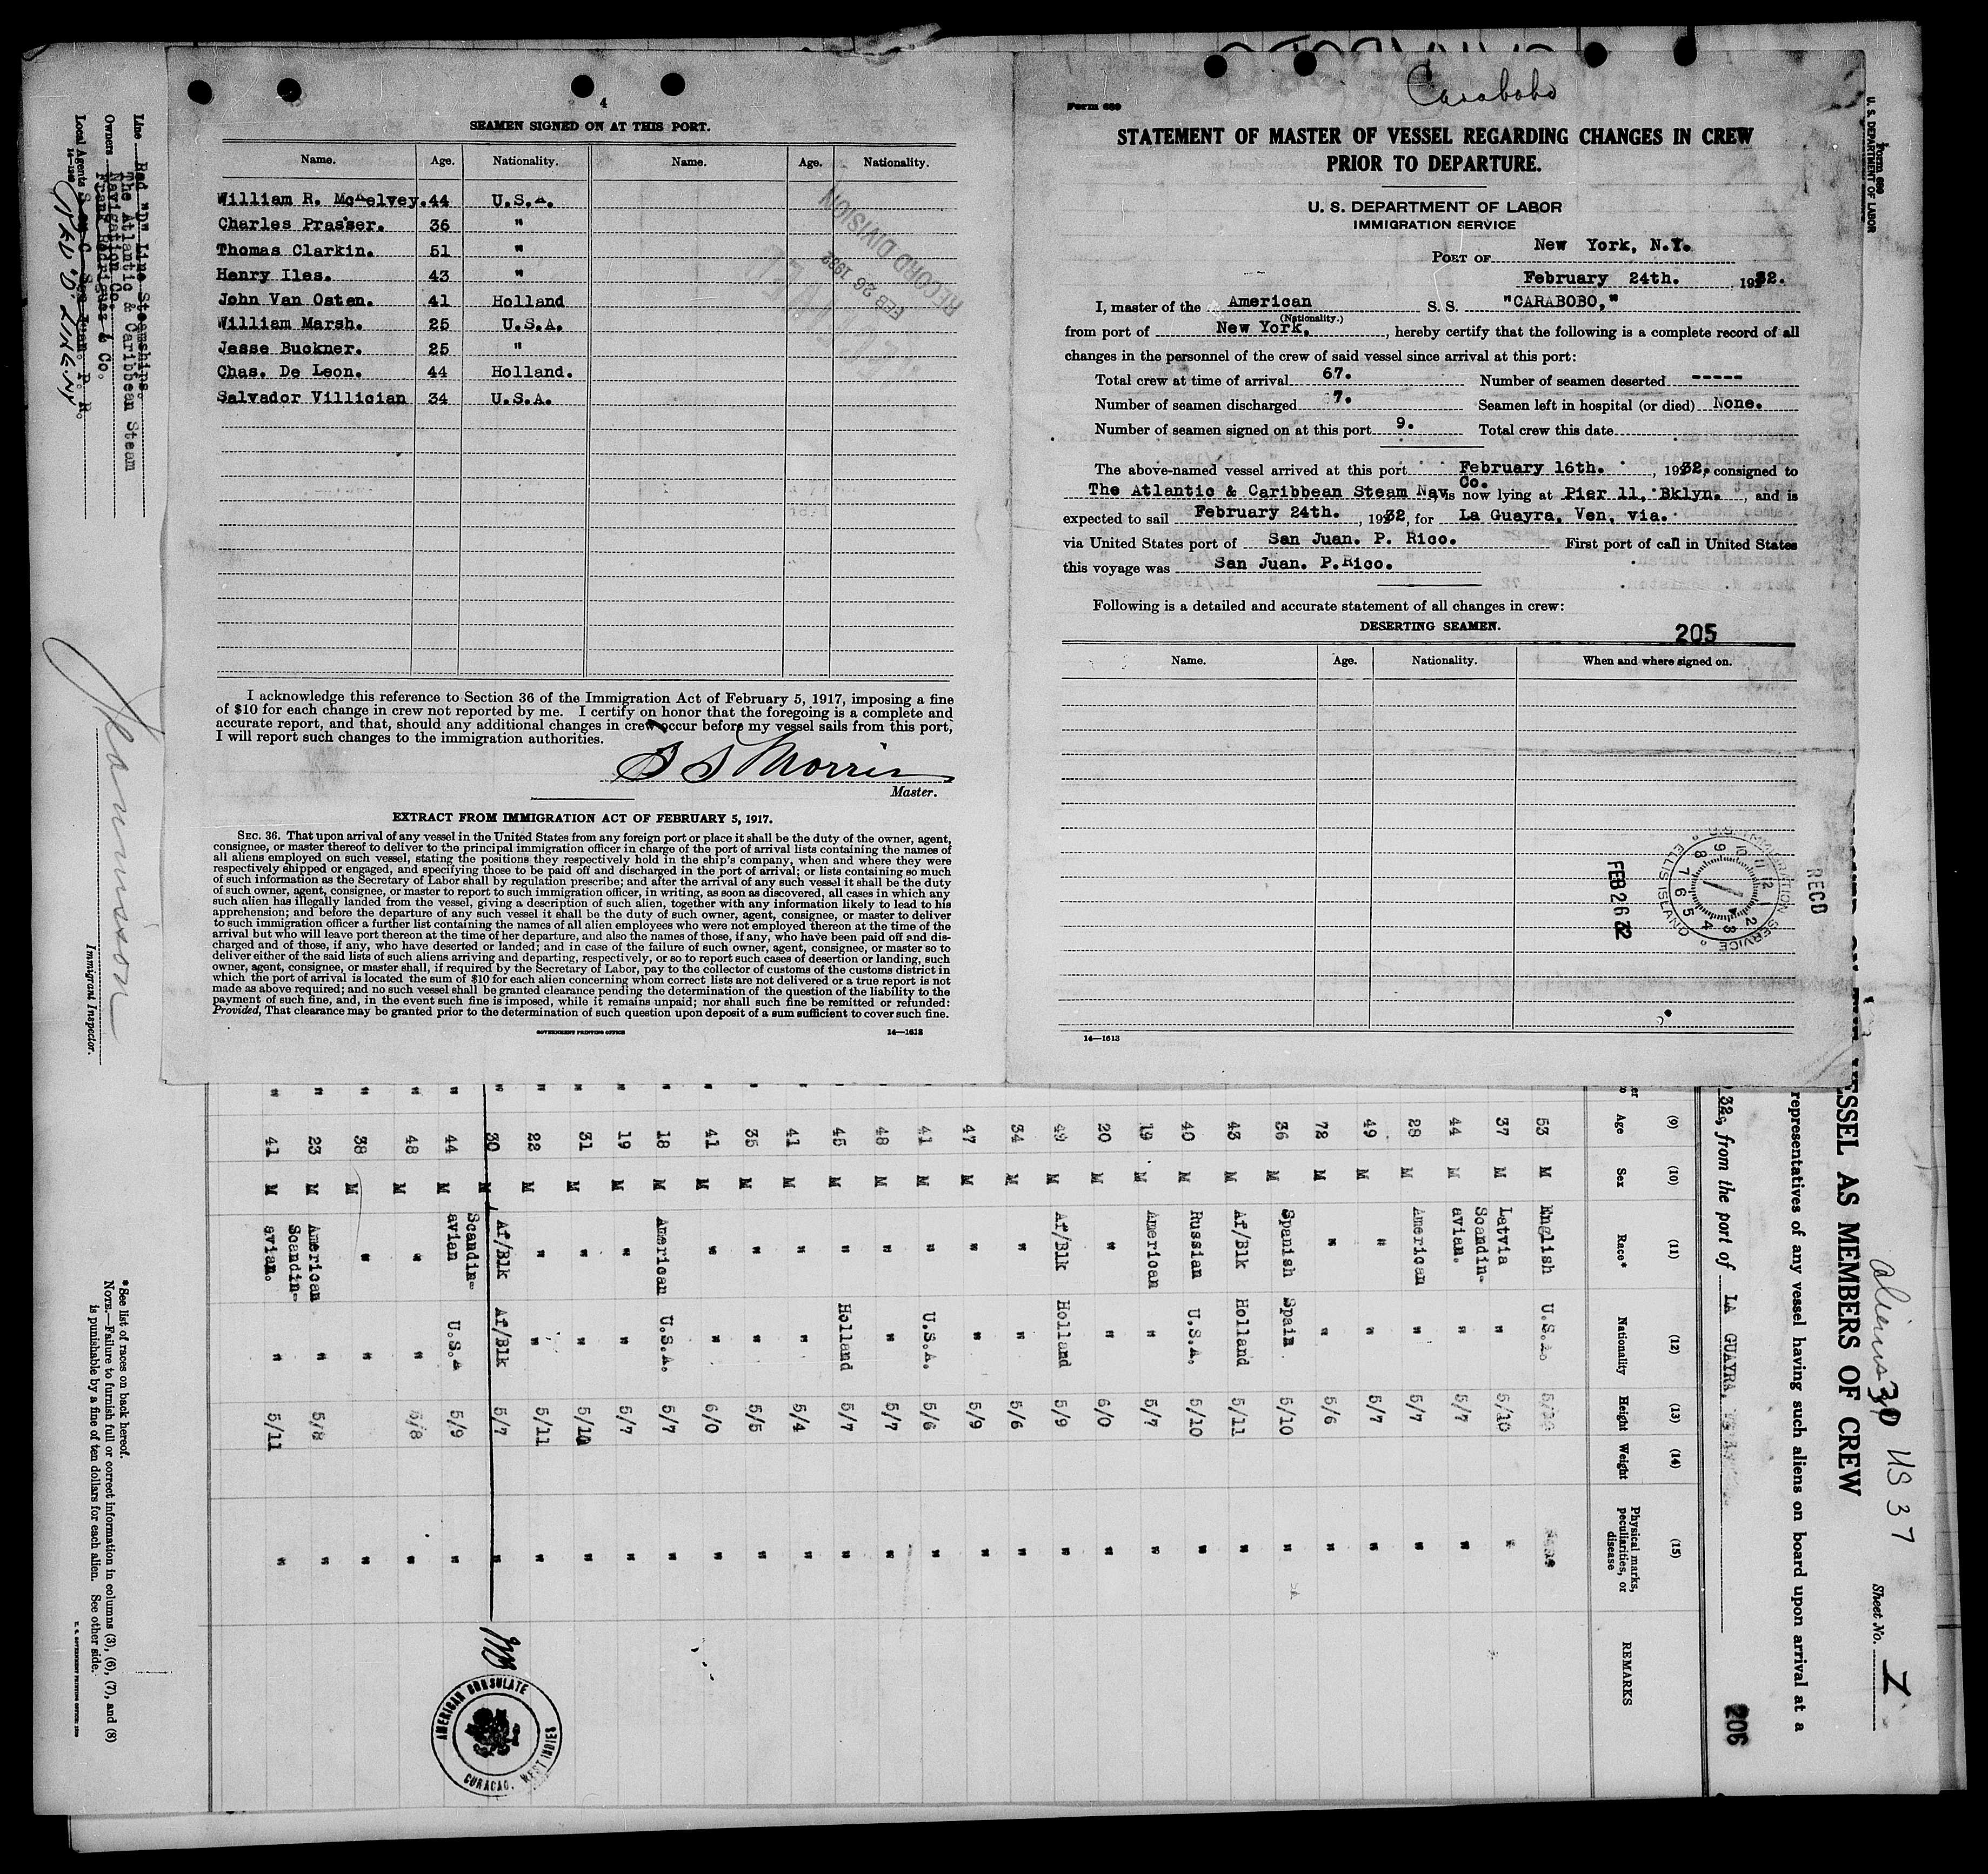 4
SEAMEN SIGNED ON AT THIS PORT.
Name. Age. Nationality. Name. Age. Nationality.
William R. McKelvey. 44 U.S.A.
Charles Prasser. 36 "
Thomas Clarkin. 51 "
Henry Iles. 43 "
John Van Osten. 41 Holland
William Marsh. 25 U.S.A.
Jesse Buckner. 25 "
Chas. De Leon. 44 Holland.
Salvador Villician 34 U.S.A.
RECORD DIVISION
FEB 26 1932
I acknowledge this reference to Section 36 of the Immigration Act of February 5, 1917, imposing a fine
of $10 for each change in crew not reported by me. I certify on honor that the foregoing is a complete and
accurate report, and that, should any additional changes in crew occur before my vessel sails from this port,
I will report such changes to the immigration authorities.
Morris
Master.
EXTRACT FROM IMMIGRATION ACT OF FEBRUARY 5, 1917.
SEC. 36. That upon arrival of any vessel in the United States from any foreign port or place it shall be the duty of the owner, agent,
consignee, or master thereof to deliver to the principal immigration officer in charge of the port of arrival lists containing the names of
all aliens employed on such vessel, stating the positions they respectively hold in the ship's company, when and where they were
respectively shipped or engaged, and specifying those to be paid off and discharged in the port of arrival; or lists containing so much
of such information as the Secretary of Labor shall by regulation prescribe; and after the arrival of any such vessel it shall be the duty
of such owner, agent, consignee, or master to report to such immigration officer, in writing, as soon as discovered, all cases in which any
such alien has illegally landed from the vessel, giving a description of such alien, together with any information likely to lead to his
apprehension; and before the departure of any such vessel it shall be the duty of such owner, agent, consignee, or master to deliver
to such immigration officer a further list containing the names of all alien employees who were not employed thereon at the time of the
arrival but who will leave port thereon at the time of her departure, and also the names of those, if any, who have been paid off and dis-
charged and of those, if any, who have deserted or landed; and in case of the failure of such owner, agent, consignee, or master so to
deliver either of the said lists of such aliens arriving and departing, respectively, or so to report such cases of desertion or landing, such
owner, agent, consignee, or master shall, if required by the Secretary of Labor, pay to the collector of customs of the customs district in
which the port of arrival is located the sum of $10 for each alien concerning whom correct lists are not delivered or a true report is not
made as above required; and no such vessel shall be granted clearance pending the determination of the question of the liability to the
payment of such fine, and, in the event such fine is imposed, while it remains unpaid; nor shall such fine be remitted or refunded:
Provided, That clearance may be granted prior to the determination of such question upon deposit of a sum sufficient to cover such fine.
GOVERNMENT PRINTING OFFICE 14—1613
Carabobo
Form 689
STATEMENT OF MASTER OF VESSEL REGARDING CHANGES IN CREW
PRIOR TO DEPARTURE.
U. S. DEPARTMENT OF LABOR
IMMIGRATION SERVICE
PORT OF New York, N.Y.
February 24th. 1932.
I, master of the American S. S. "CARABOBO,"
(Nationality.)
from port of New York. , hereby certify that the following is a complete record of all
changes in the personnel of the crew of said vessel since arrival at this port:
Total crew at time of arrival 67. Number of seamen deserted -----
Number of seamen discharged 7. Seamen left in hospital (or died) None.
Number of seamen signed on at this port 9. Total crew this date
The above-named vessel arrived at this port February 16th. , 1932, consigned to
The Atlantic & Caribbean Steam Nav. Co. is now lying at Pier 11, Bklyn. , and is
expected to sail February 24th. , 1932, for La Guayra, Ven, via.
via United States port of San Juan. P. Rico. First port of call in United States
this voyage was San Juan. P.Rico.
Following is a detailed and accurate statement of all changes in crew:
DESERTING SEAMEN.
205
Name. Age. Nationality. When and where signed on.
RECD
U.S. IMMIGRATION SERVICE
ELLIS ISLAND
FEB 26 32
14—1613
Form 680
U. S. DEPARTMENT OF LABOR
Aliens 30 US 37
Sheet No. 1
VESSEL AS MEMBERS OF CREW
representatives of any vessel having such aliens on board upon arrival at a
32, from the port of LA GUAYRA,
206
(9) (10) (11) (12) (13) (14) (15)
Age Sex Race* Nationality Height Weight Physical marks, peculiarities, or disease REMARKS
53 M English U.S.A. None
37 M Latvia " 5/10 "
44 M Scandin-avian. " 5/7 "
28 M American " 5/7 "
49 M " " 5/7 "
72 M " " 5/6 "
36 M Spanish Spain 5/10 "
43 M Af/Blk Holland 5/11 "
40 M Russian U.S.A. 5/10 "
19 M American " 5/7 "
20 M " " 6/0 "
49 M Af/Blk Holland 5/9 "
34 M " " 5/6 "
47 M " " 5/9 "
41 M " U.S.A. 5/6 "
48 M " " 5/7 "
45 M " Holland 5/7 "
41 M " " 5/4 "
35 M " " 5/5 "
41 M " " 6/0 "
18 M American U.S.A. 5/7 "
19 M " " 5/7 "
31 M " " 5/10 "
22 M " " 5/11 "
30 M Af/Blk Af/Blk 5/7 "
44 M Scandin-avian U.S.A 5/9 "
48 M " " 5/8 "
38 M " " "
23 M American " 5/8 "
41 M Scandin-avian. " 5/11 "
AMERICAN CONSULATE
CURACAO, WEST INDIES
Line Red "D" Line Steamships.
Owners The Atlantic & Caribbean Steam
Navigation Co.
Local Agents
14—1240
Immigrant Inspector.
*See list of races on back hereof.
NOTE.—Failure to furnish full or correct information in columns (3), (6), (7), and (8)
is punishable by a fine of ten dollars for each alien. See other side.